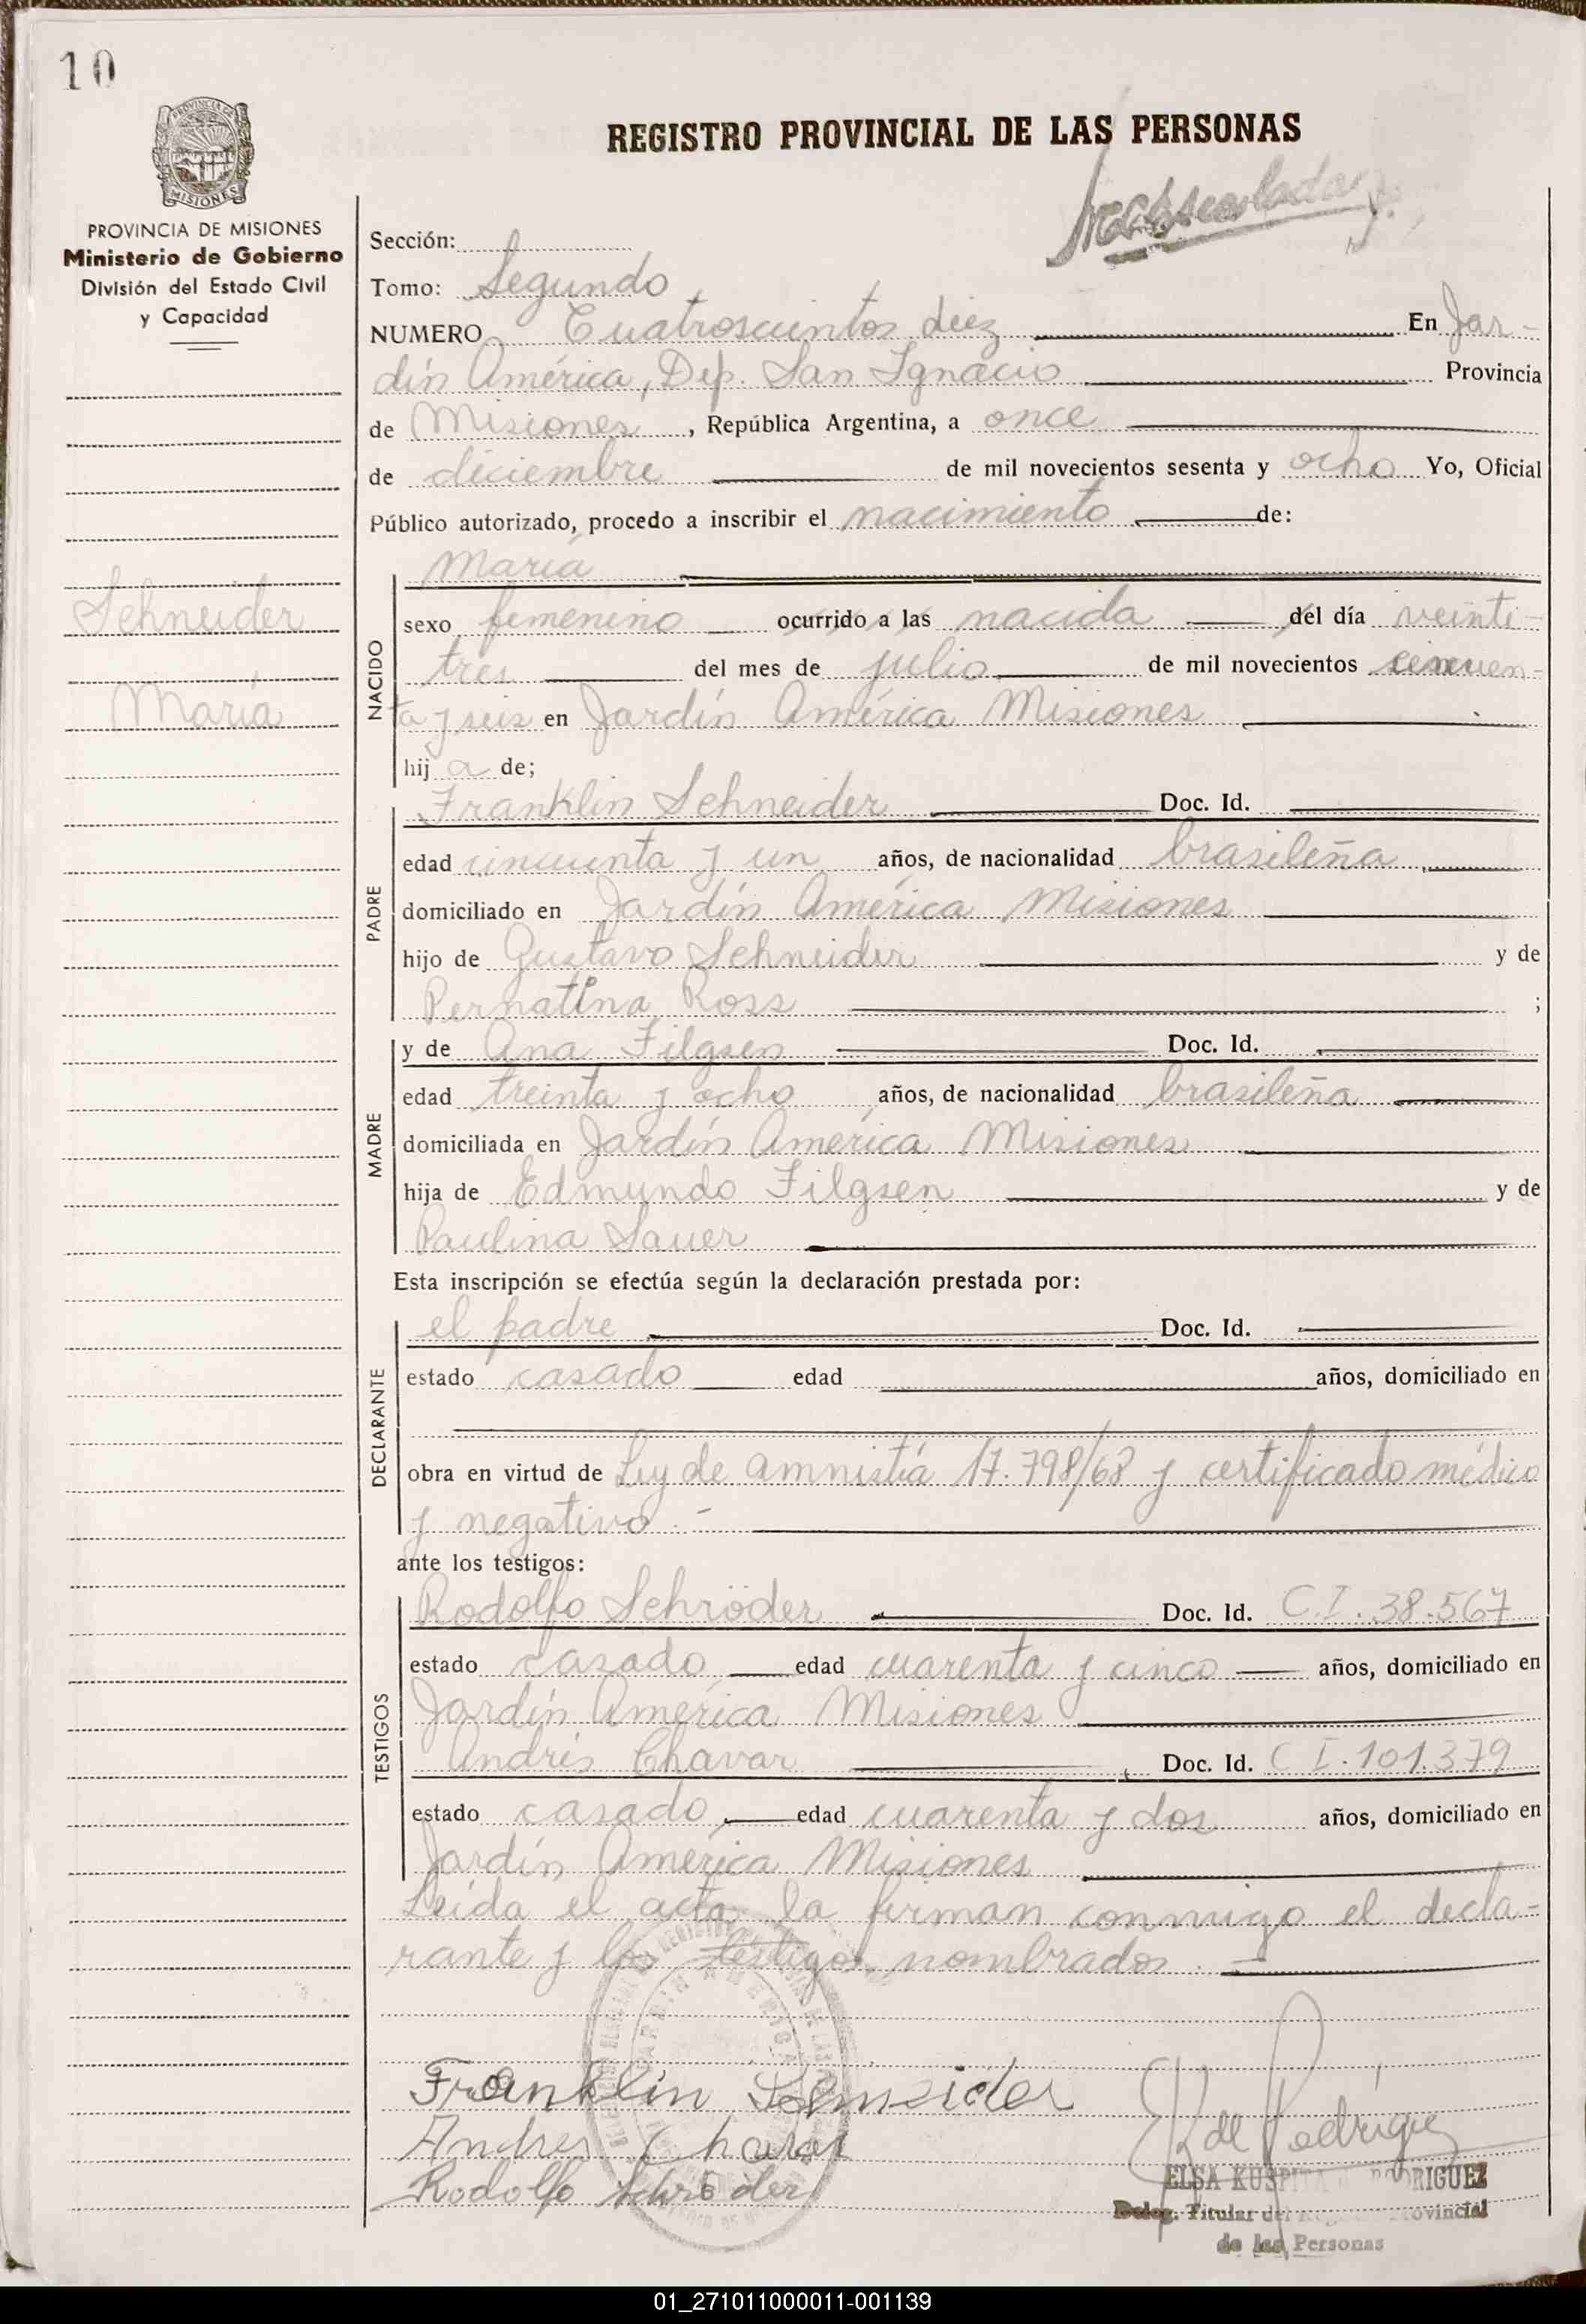 10
PROVINCIA DE
MISIONES
PROVINCIA DE MISIONES
Ministerio de Gobierno
División del Estado Civil
y Capacidad
Schneider
María
REGISTRO PROVINCIAL DE LAS PERSONAS
Sección:
Tomo: Segundo
NUMERO Cuatroscientos diez En Jar-
dín América, Dep. San Ignacio Provincia
de Misiones, República Argentina, a once
de diciembre de mil novecientos sesenta y ocho Yo, Oficial
Público autorizado, procedo a inscribir el nacimiento de:
NACIDO
María
sexo femenino ocurrido a las nacida del día veinti-
tres del mes de julio de mil novecientos cincuen-
ta y seis en Jardín América Misiones
hij a de;
PADRE
Franklin Schneider Doc. Id.
edad cincuenta y un años, de nacionalidad brasileña
domiciliado en Jardín América Misiones
hijo de Gustavo Schneider y de
Pernatina Ross ;
MADRE
y de Ana Filgsen Doc. Id.
edad treinta y ocho años, de nacionalidad brasileña
domiciliada en Jardín América Misiones
hija de Edmundo Filgsen y de
Paulina Sauer
Esta inscripción se efectúa según la declaración prestada por:
DECLARANTE
el padre Doc. Id.
estado casado edad años, domiciliado en
obra en virtud de Ley de amnistía 17.798/68 y certificado médico
y negativo.-
ante los testigos:
TESTIGOS
Rodolfo Schröder Doc. Id. C.I. 38.567
estado casado edad cuarenta y cinco años, domiciliado en
Jardín América Misiones
Andrés Chavar Doc. Id. C I. 101.379
estado casado, edad cuarenta y dos años, domiciliado en
Jardín América Misiones
Leída el acta, la firman conmigo el decla-
rante y los testigos nombrados.
Franklin Schneider
Andres Chavar
Rodolfo Schröder
E K de Rodríguez
ELSA RODRIGUEZ
Deleg. Titular del Provincial
de las Personas
01_271011000011-001139